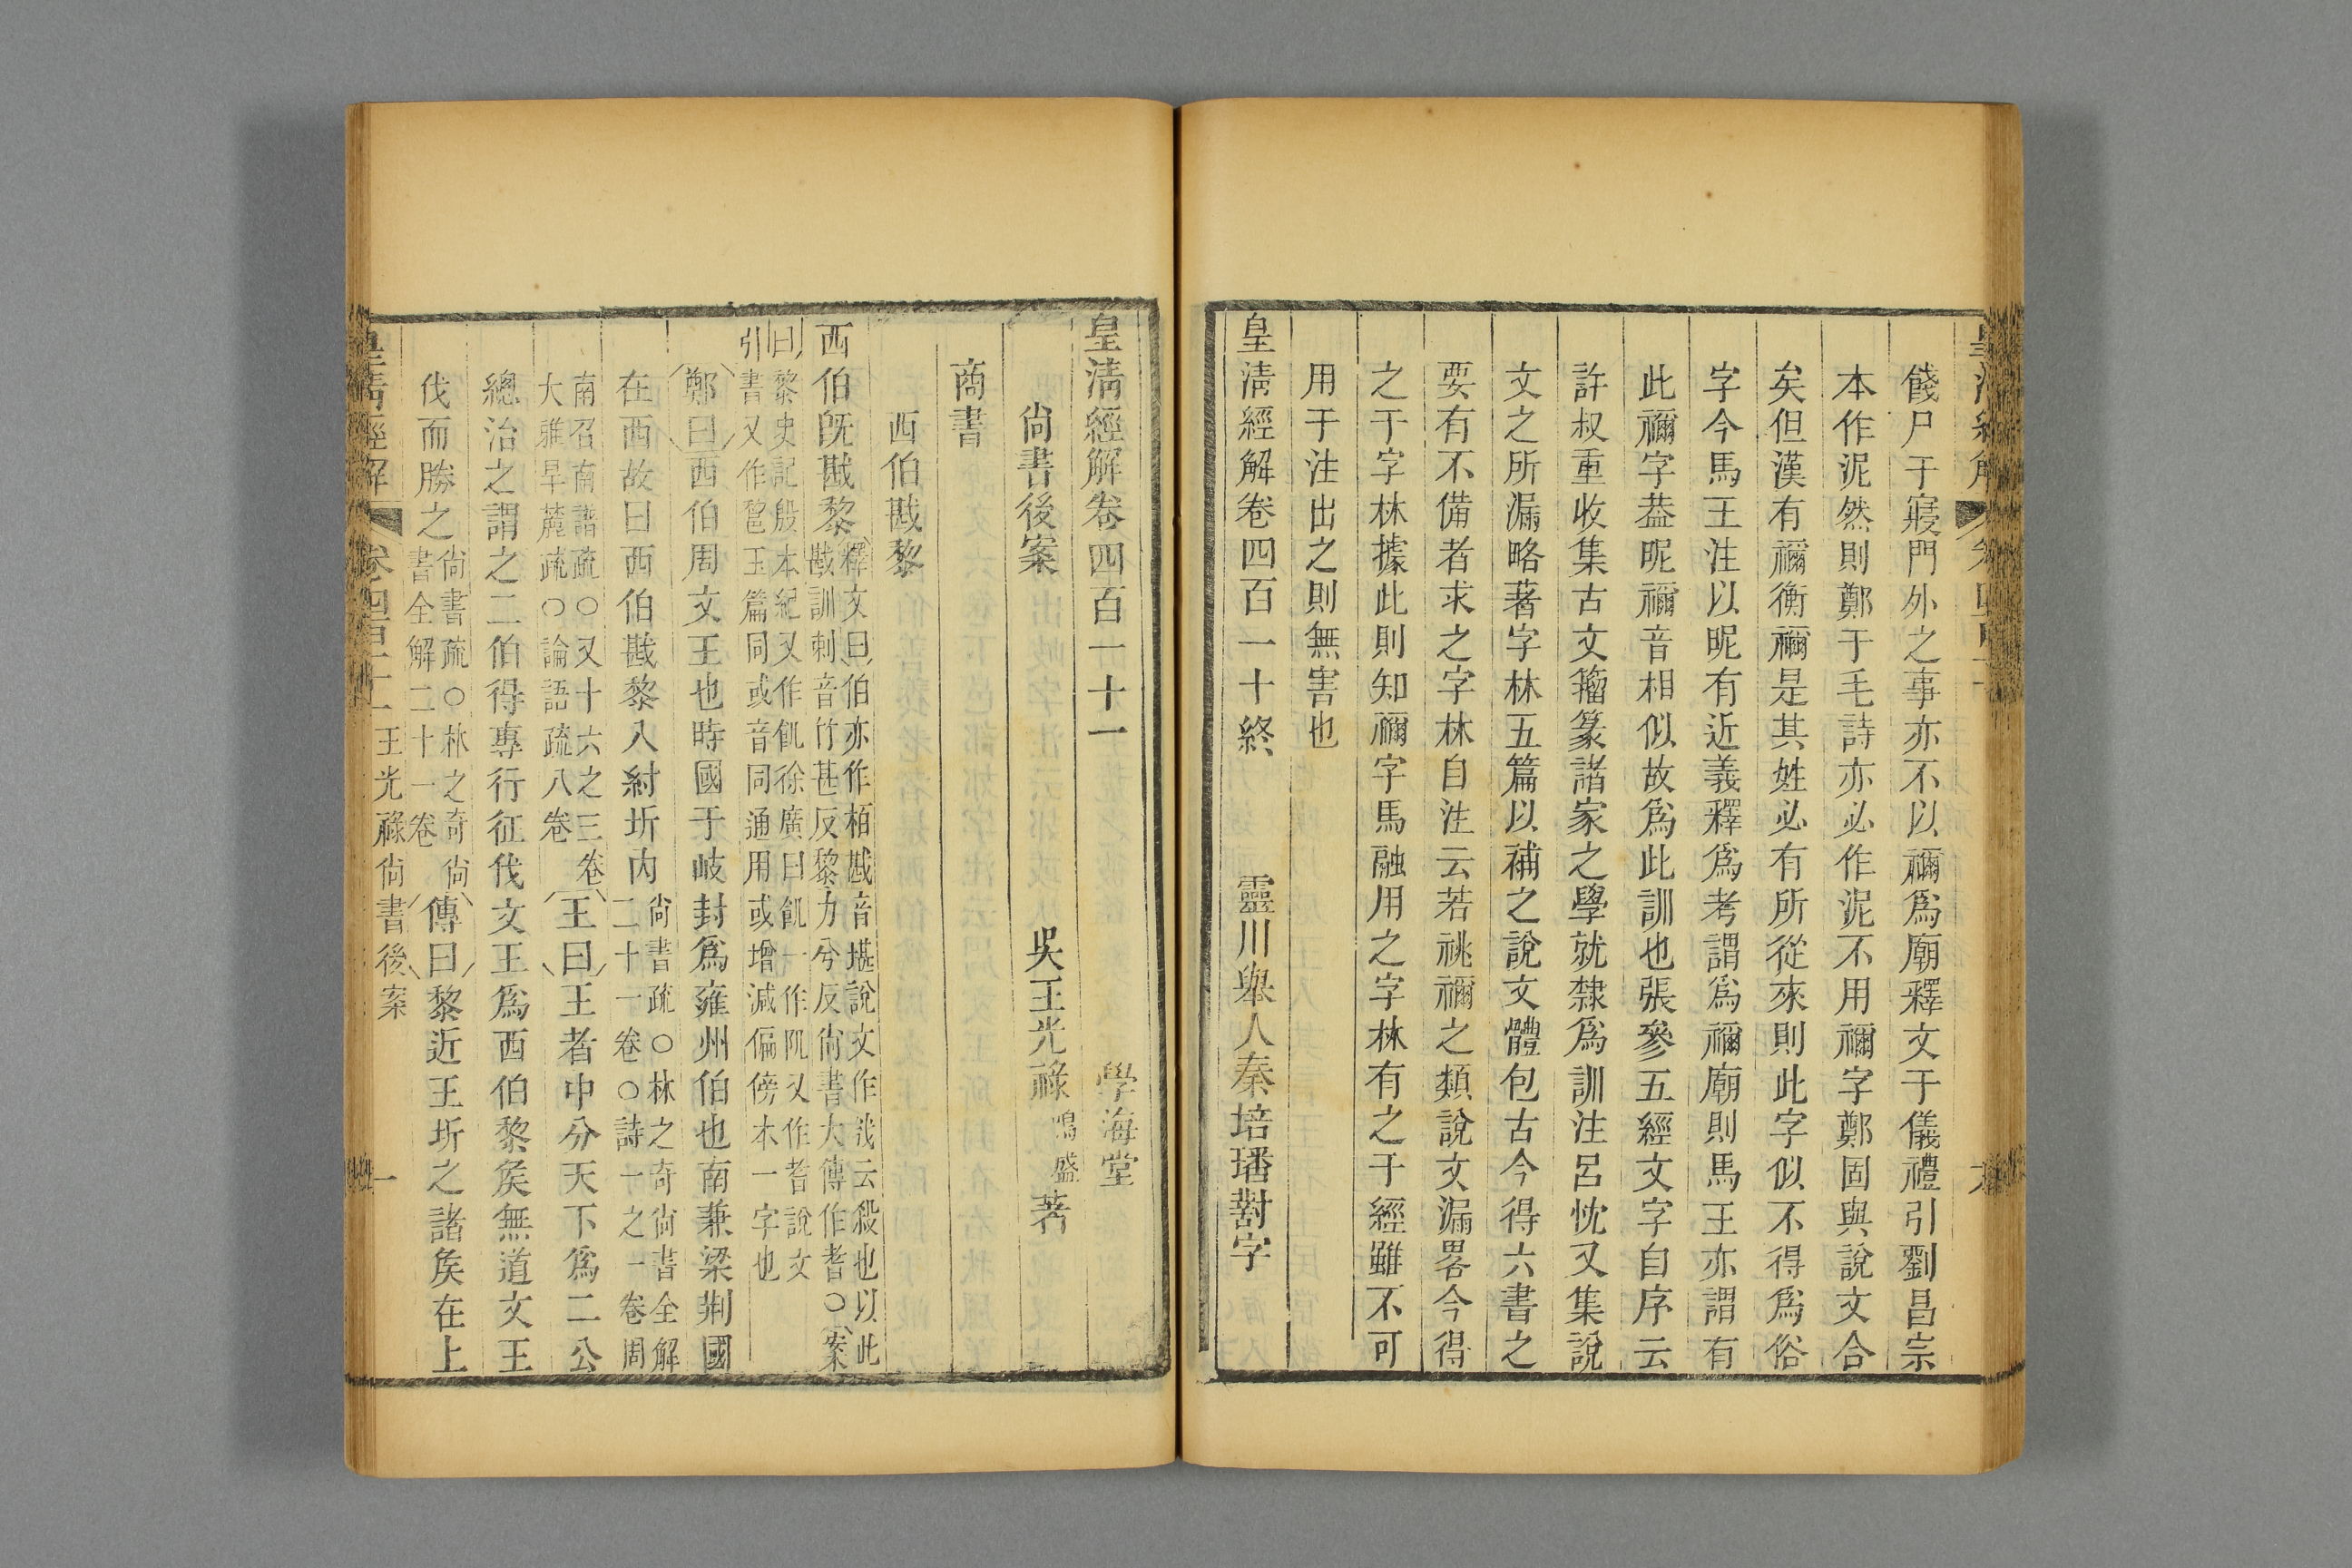 餞尸于寢門外之事亦不以禰爲廟釋文于儀禮引劉昌宗
本作泥然則鄭于毛詩亦必作泥不用禰字鄭固與說文合
矣但漢有禰衡禰是其姓必有所從來則此字似不得爲俗
字今馬王注以昵有近義釋爲考謂爲禰廟則馬王亦謂有
此禰字葢昵禰音相似故爲此訓也張參五經文字自序云
許叔重收集古文籀篆諸家之學就隸爲訓注呂忱又集說
文之所漏略著字林五篇以補之說文體包古今得六書之
要有不備者求之字林自注云若祧禰之類說文漏畧今得
之于字林據此則知禰字馬融用之字林有之于經雖不可
用于注出之則無害也
皇清經解卷四百一十終
靈川舉人秦培璠對字
皇清經解卷四百一十一
學海堂
尚書後案
吳王光祿鳴盛著
商書
西伯戡黎
西伯旣戡黎
釋文曰伯亦作柏戡音堪說文作𢦟云殺也以此
戡訓刺音竹甚反黎力兮反尚書大傳作耆○案
曰黎史記殷本紀又作飢徐廣曰飢一作阢又作耆說文
引書又作𨛫玉篇同或音同通用或增減偏傍本一字也
鄭曰西伯周文王也時國于岐封爲雍州伯也南兼梁荆國
在西故曰西伯戡黎入紂圻內
尚書疏○林之奇尚書全解
二十一卷○詩一之一卷周
南召南譜疏○又十六之三卷
大雅旱麓疏○論語疏八卷
王曰王者中分天下爲二公
總治之謂之二伯得專行征伐文王爲西伯黎矦無道文王
伐而勝之
尚書疏○林之奇尚
書全解二十一卷
傳曰黎近王圻之諸矦在上
皇清經解
卷四百十一
王光祿尚書後案
一